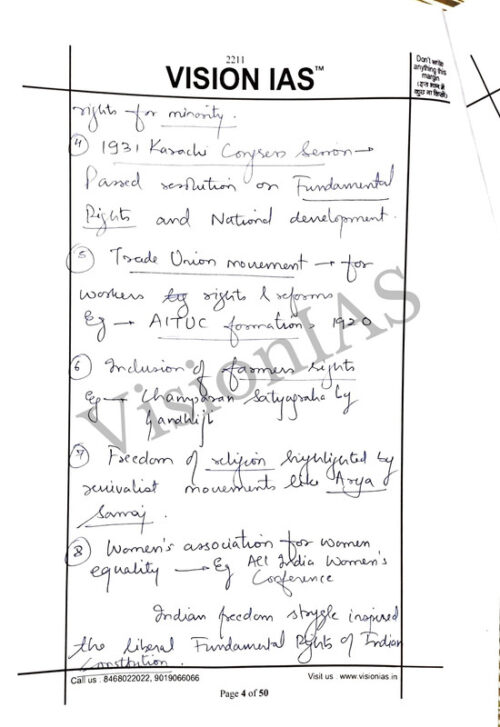 2211
VISION IAS™
Don't write
anything this
margin
(इस भाग में
कुछ ना लिखें)
rights for minority.
4) 1931 Karachi Congress Session →
Passed resolution on Fundamental
Rights and National development.
5 Trade Union movement → for
workers rights & reforms
Eg → AITUC formation 1920
6 Inclusion of farmers rights
Eg → Champaran Satyagraha by
Gandhiji
7 Freedom of religion highlighted by
revivalist movements like Arya
Samaj.
8 Women's association for women
equality → Eg All India Women's
Conference
Indian freedom struggle inspired
the liberal Fundamental Rights of Indian
Constitution.
VisionIAS
Call us : 8468022022, 9019066066
Visit us : www.visionias.in
Page 4 of 50